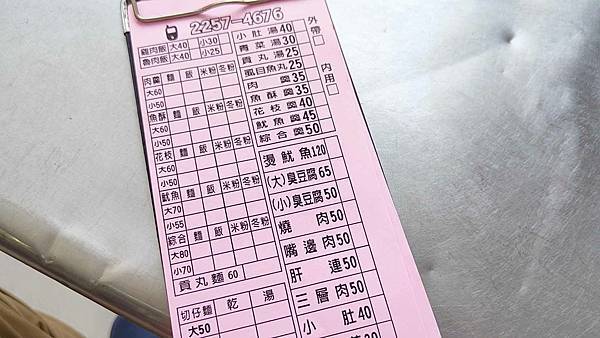 2257-4676
雞肉飯 大40 小30
魯肉飯 大40 小25
肉羹 麵 飯 米粉 冬粉
大60
小50
魚酥 麵 飯 米粉 冬粉
大60
小50
花枝 麵 飯 米粉 冬粉
大60
小50
魷魚 麵 飯 米粉 冬粉
大70
小55
綜合 麵 飯 米粉 冬粉
大80
小70
貢丸麵 60
切仔麵 乾 湯
大50
小肚湯40
青菜湯30
貢丸湯25
虱目魚丸25
肉羹35
魚酥羹35
花枝羹40
魷魚羹45
綜合羹50
燙魷魚120
(大)臭豆腐65
(小)臭豆腐50
燒肉50
嘴邊肉50
肝連50
三層肉50
小肚40
外帶□
內用□